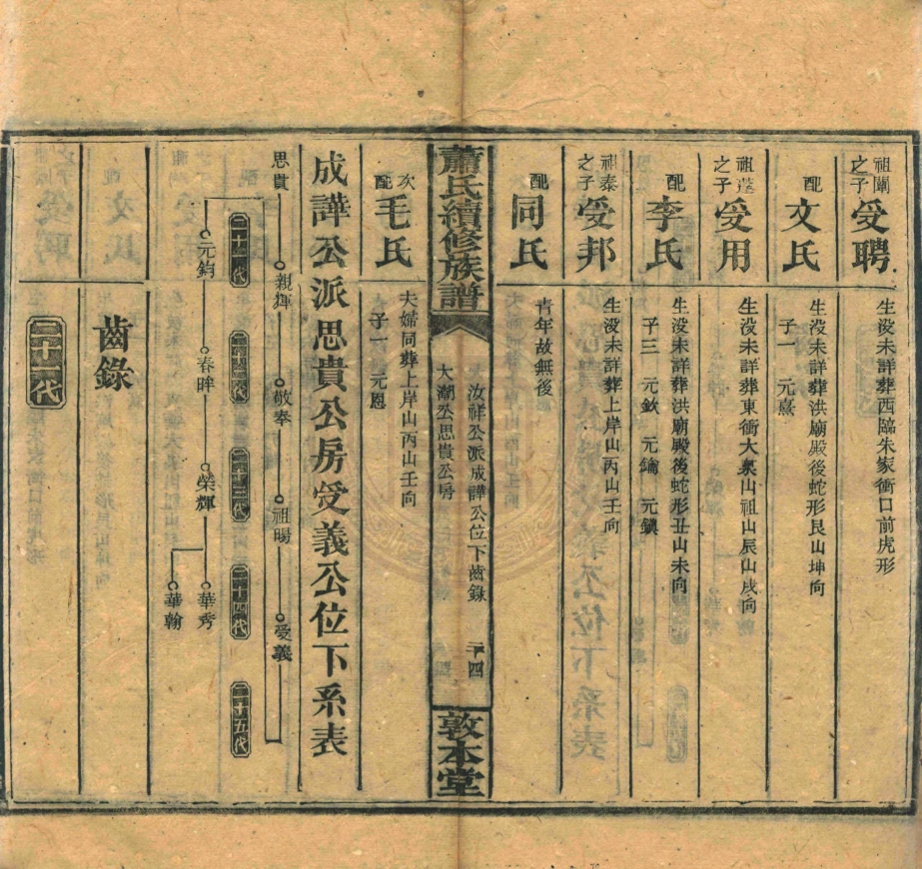 祖闡之子受聘
生没未詳葬西臨朱家衝口前虎形
配文氏
生没未詳葬洪廟殿後蛇形艮山坤向
子一 元熹
祖蓬之子受用
生没未詳葬東衝大泉山祖山辰山戌向
配李氏
生没未詳葬洪廟殿後蛇形丑山未向
子三 元欽 元鑰 元鎮
祖泰之子受邦
生没未詳葬上岸山丙山壬向
配同氏
青年故無後
蕭氏續修族譜
汝祥公派成譁公位下齒錄
大潮公思貴公房
二十四
敦本堂
次配毛氏
夫婦同葬上岸山丙山壬向
子一 元恩
成譁公派思貴公房受義公位下系表
思貴 親揮 敬奉 祖暘 受義
二十一代 二十二代 二十三代 二十四代 二十五代
元鈞 春晬 榮輝 華秀
華翰
齒錄
二十一代